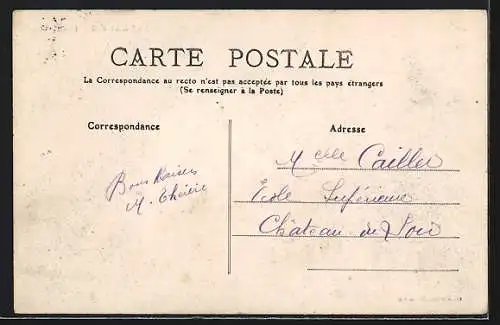 CARTE POSTALE
La Correspondance au recto n'est pas acceptée par tous les pays étrangers
(Se renseigner à la Poste)
Correspondance
Adresse
Mcelle Cailler
Bons Baisers
M. Thérèse
École Supérieure
Château du Loir